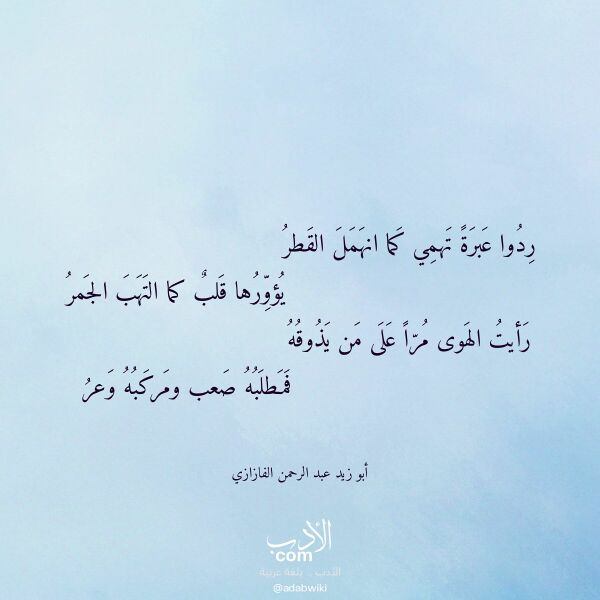 رِدُوا عَبرَةً تَهمِي كَما انهَمَلَ القَطرُ
يُؤوِّرُها قَلبٌ كما التَهَبَ الجَمرُ
رَأيتُ الهَوى مُرّاً عَلَى مَن يَذُوقُهُ
فَمَطلَبُهُ صَعب ومَركَبُهُ وَعرُ
أبو زيد عبد الرحمن الفازازي
الأدب
com
الأدب .. بلغة عربية
@adabwiki